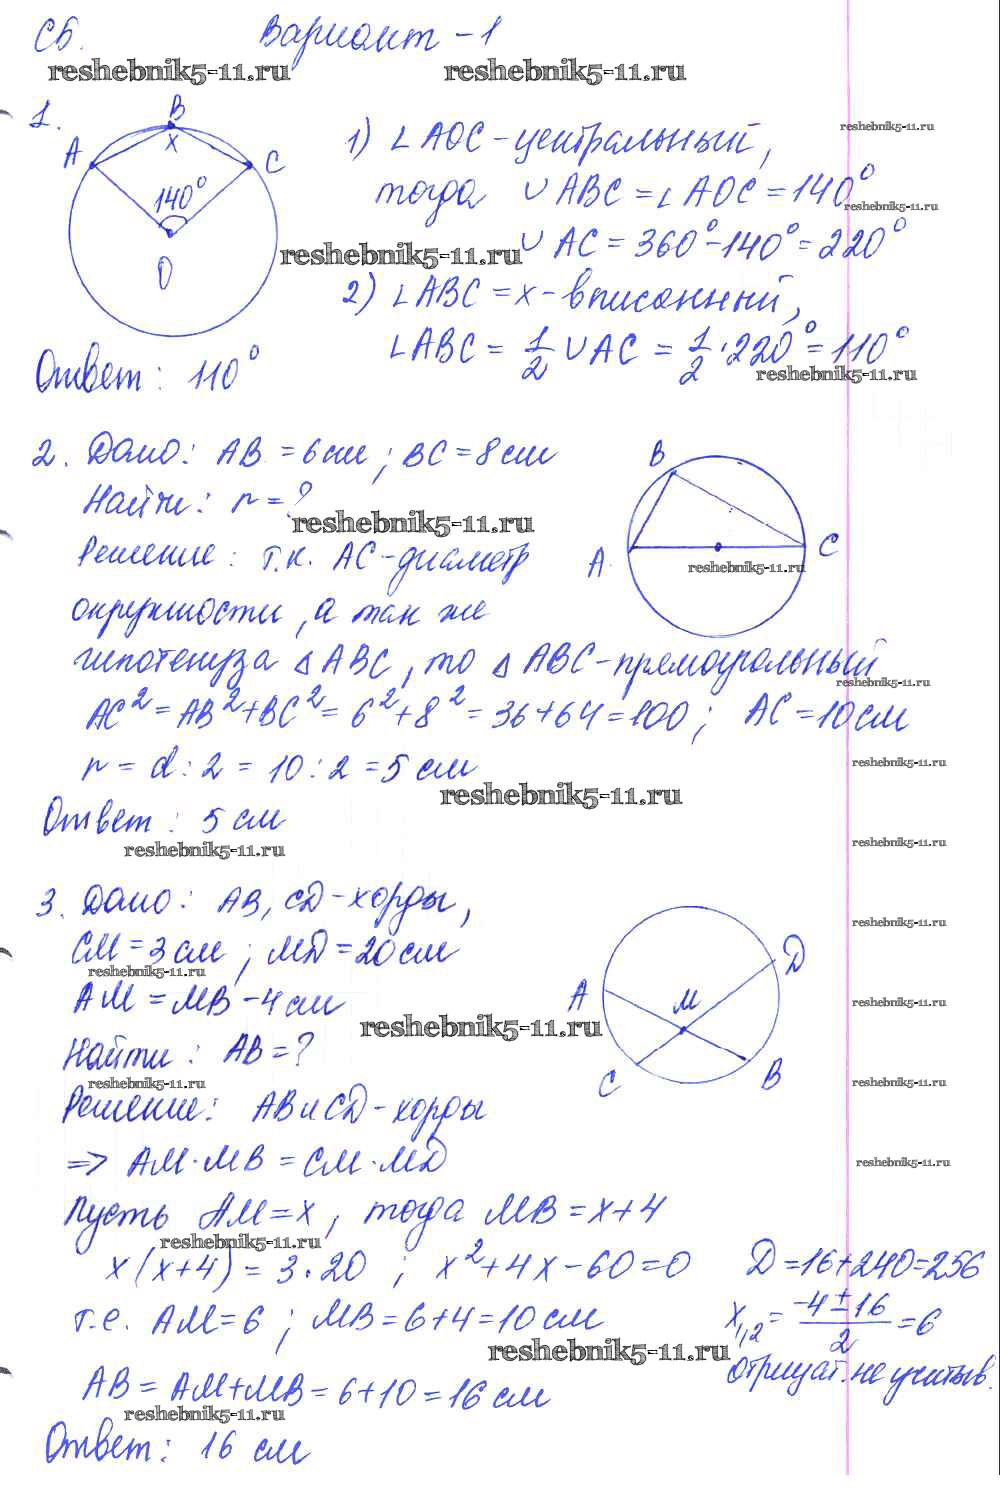 С6. Вариант - 1
reshebnik5-11.ru reshebnik5-11.ru
1.
B
A x C
140°
O
1) ∠AOC - центральный,
reshebnik5-11.ru
тогда ∪ABC = ∠AOC = 140°
reshebnik5-11.ru
∪AC = 360° - 140° = 220°
reshebnik5-11.ru
2) ∠ABC = x - вписанный,
∠ABC = 1/2 ∪AC = 1/2 · 220° = 110°
reshebnik5-11.ru
Ответ: 110°
2. Дано: AB = 6 см; BC = 8 см
Найти: r = ?
reshebnik5-11.ru
B
A C
reshebnik5-11.ru
Решение: т.к. AC - диаметр
окружности, а так же
гипотенуза △ABC, то △ABC - прямоугольный
reshebnik5-11.ru
AC² = AB² + BC² = 6² + 8² = 36 + 64 = 100; AC = 10 см
r = d : 2 = 10 : 2 = 5 см
reshebnik5-11.ru
reshebnik5-11.ru
Ответ: 5 см
reshebnik5-11.ru
reshebnik5-11.ru
3. Дано: AB, CD - хорды,
reshebnik5-11.ru
CM = 3 см; MD = 20 см
reshebnik5-11.ru
AM = MB - 4 см
reshebnik5-11.ru
reshebnik5-11.ru
D
A M
C B
Найти: AB = ?
reshebnik5-11.ru
reshebnik5-11.ru
Решение: AB и CD - хорды
=> AM · MB = CM · MD
reshebnik5-11.ru
Пусть AM = x, тогда MB = x + 4
reshebnik5-11.ru
x(x + 4) = 3 · 20; x² + 4x - 60 = 0 D = 16 + 240 = 256
т.е. AM = 6; MB = 6 + 4 = 10 см x₁,₂ = (-4 ± 16)/2 = 6
reshebnik5-11.ru
отрицат. не учитыв.
AB = AM + MB = 6 + 10 = 16 см
reshebnik5-11.ru
Ответ: 16 см